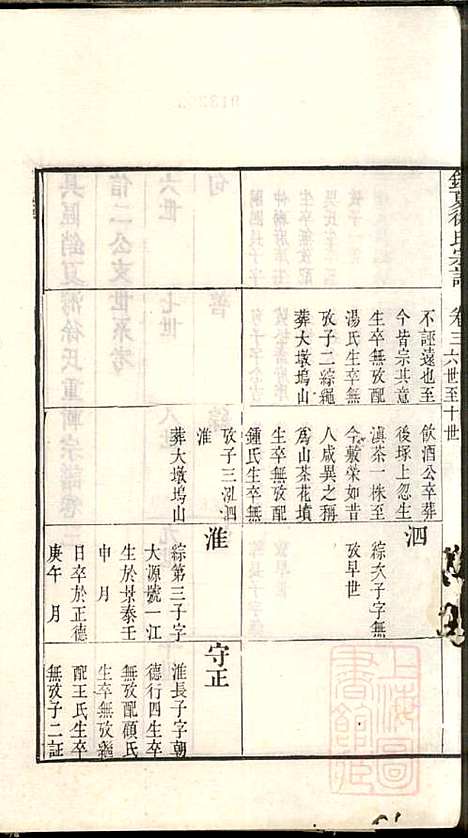 銷夏徐氏宗譜
卷三六世至十世
不誣遠也至
今皆宗其意
生卒無攷配
湯氏生卒無
攷子二綜繩
葬大墩塢山
飲酒公卒葬
後塚上忽生
滇茶一株至
今敷榮如昔
人咸異之稱
爲山茶花墳
生卒無攷配
鍾氏生卒無
攷子三泓泗
淮
葬大墩塢山
泗
綜次子字無
攷早世
淮
綜第三子字
大源號一江
生於景泰王
申 月
日卒於正德
庚午 月
守正
淮長子字朝
德行四生卒
無攷配顧氏
生卒無攷繼
配王氏生卒
無攷子二証
上海圖書館藏